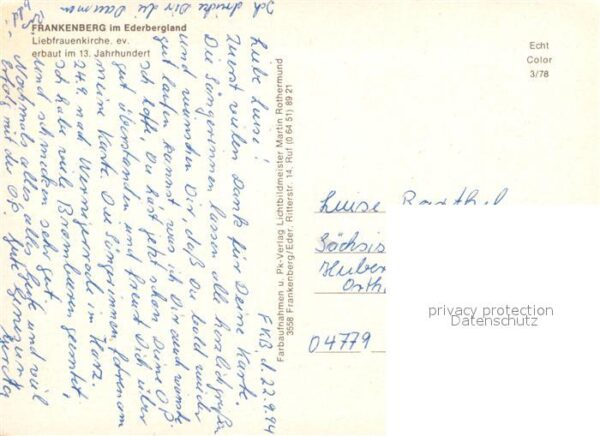 FRANKENBERG im Ederbergland
Liebfrauenkirche, ev.
erbaut im 13. Jahrhundert
Echt
Color
3/78
Farbaufnahmen u. Pk-Verlag Lichtbildmeister Martin Rothermund
3558 Frankenberg/Eder, Ritterstr. 14, Ruf (0 64 51) 89 21
d. 22.9.94
Liebe Luise!
Zuerst vielen Dank für Deine Karte.
Die Sängerinnen lassen alle herzlich grüßen
und wünschen Dir daß Du bald wieder
gut laufen kannst was ich Dir auch wünsche
ich hoffe, Du hast jetzt schon Deine OP
gut überstanden und freust Dich über
meine Karte. Die Sängerinnen fahren am
24.9. nach Wernigerode im Harz.
ich habe viele Brombeeren geerntet,
und schmecken sehr gut
Nochmals alles alles Gute und viel
Erfolg mit der OP.
Ich drücke Dir die Daumen
Luise
Sächsis
Huber
Orth
04779
privacy protection
Datenschutz